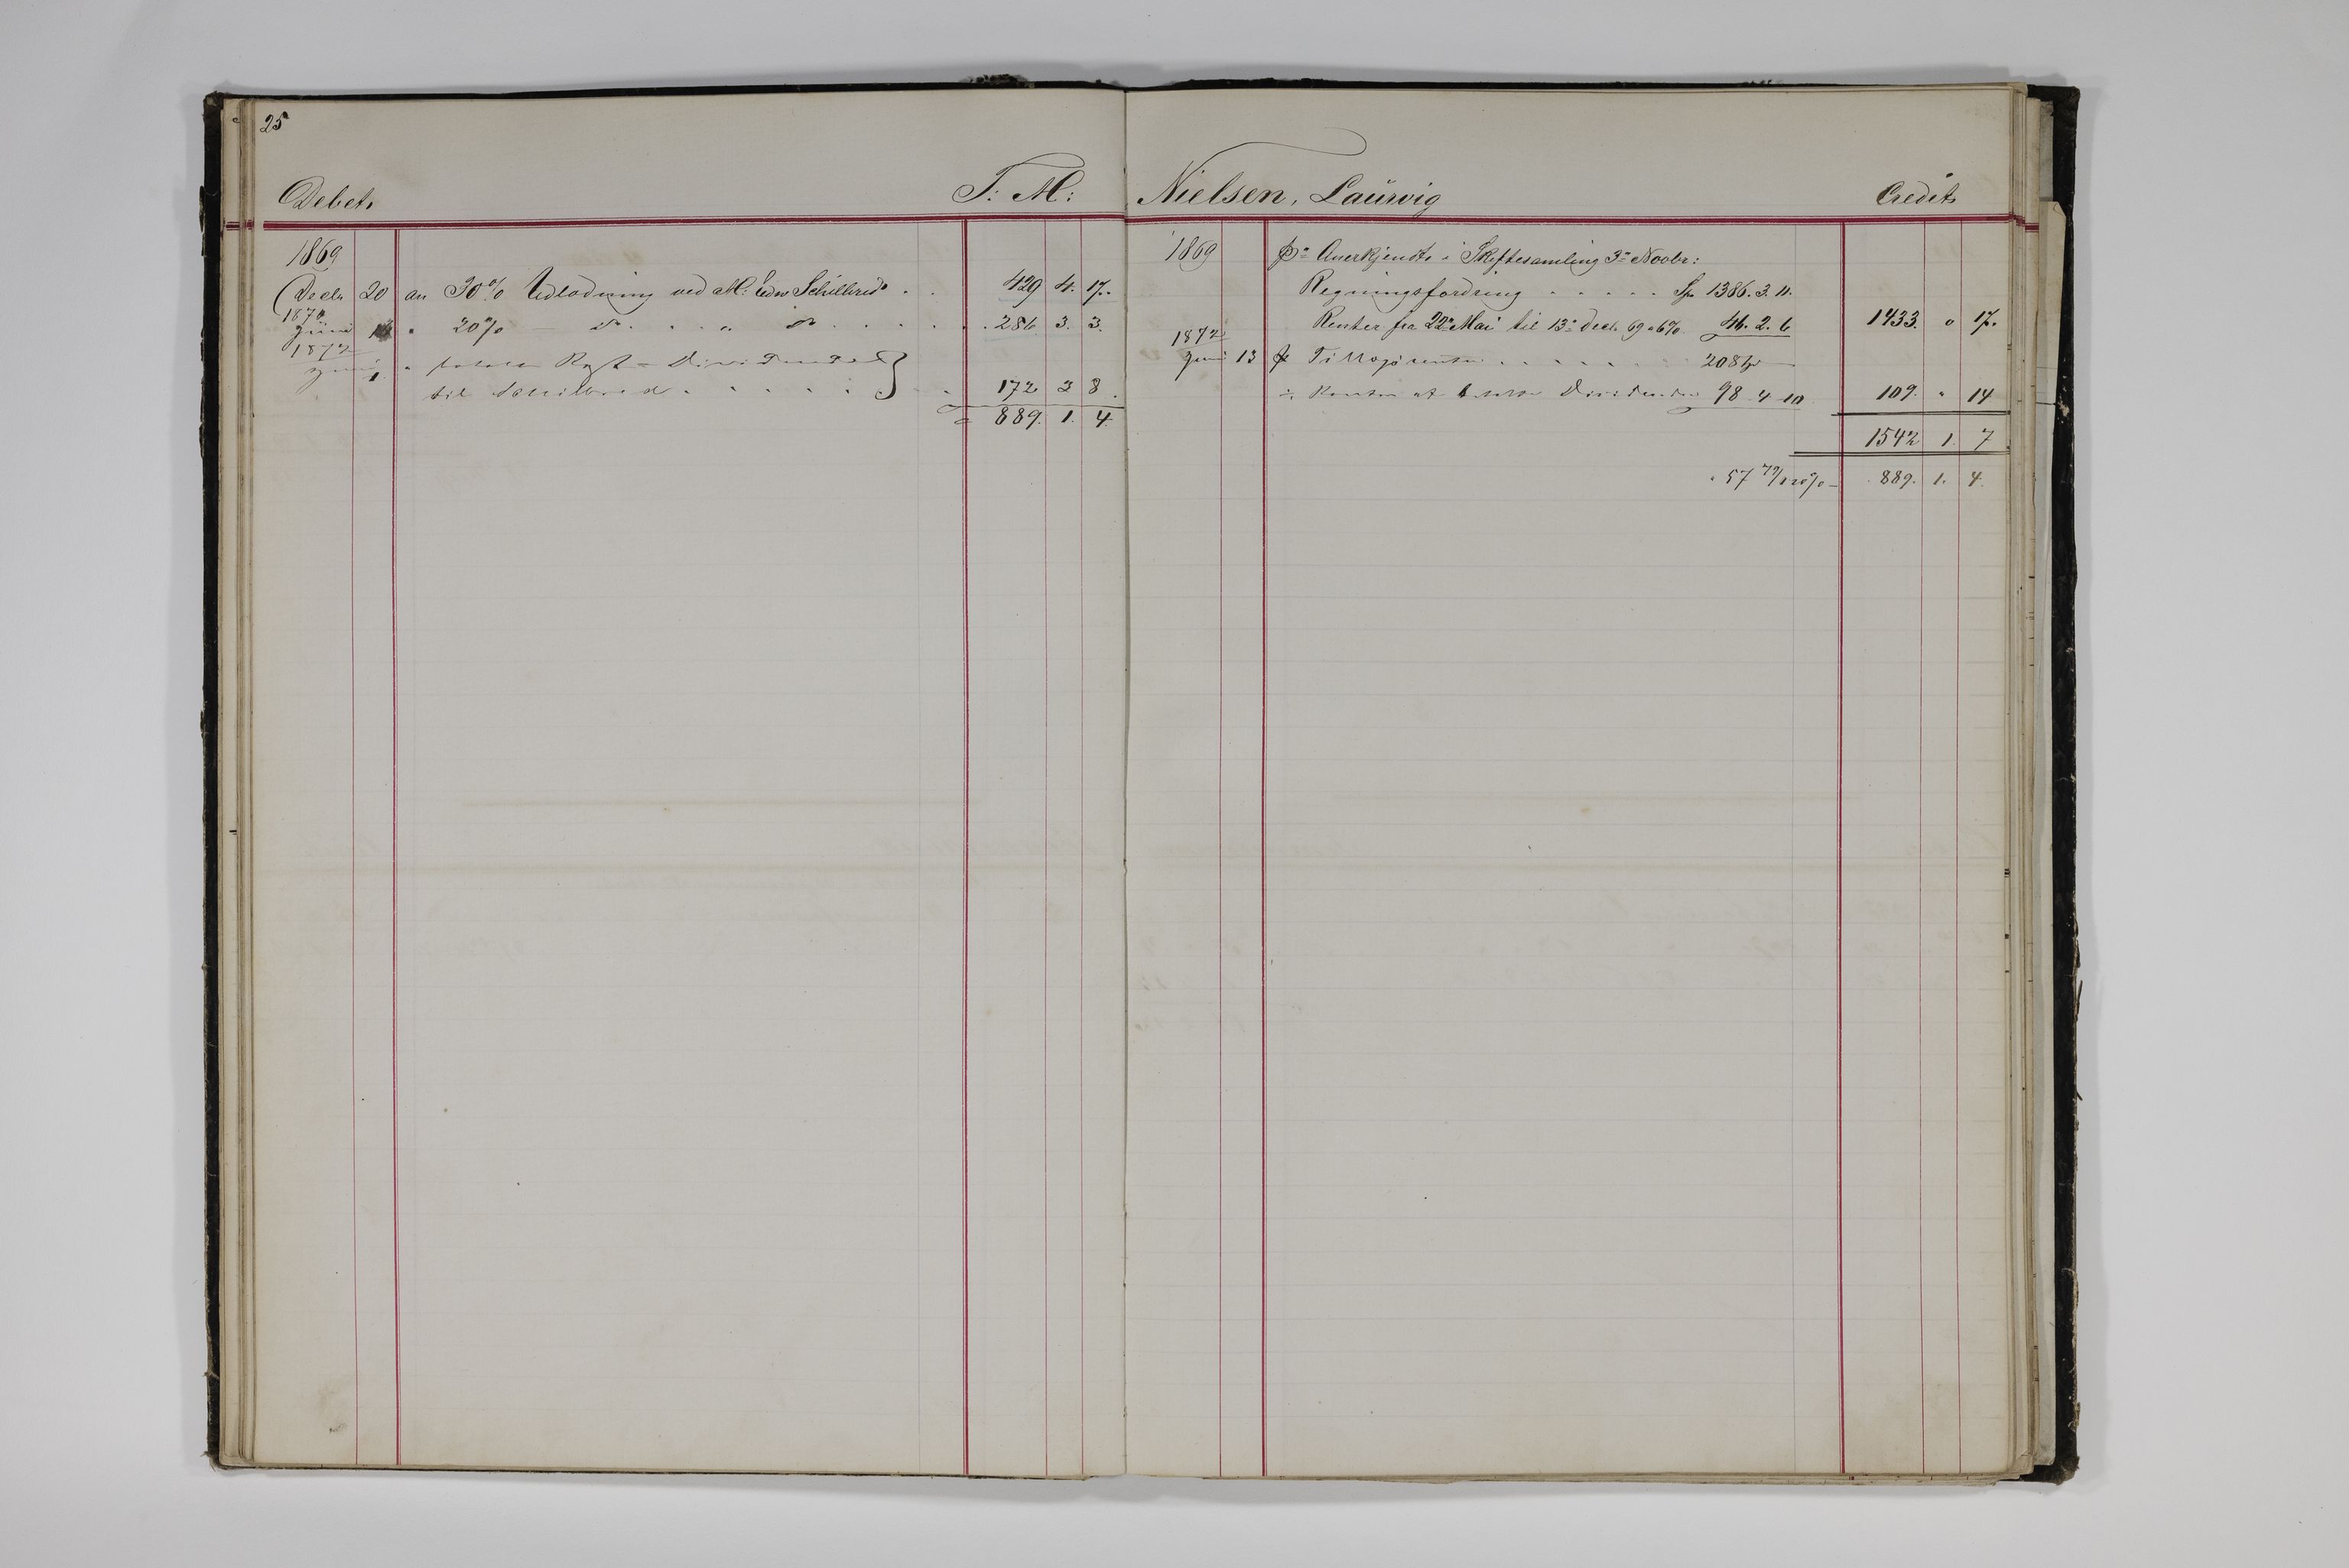 25
Debet. T. M: Nielsen, Laurvig Credit
1869
Decbr 20 an 30% Udlodning ved M: Edw Schilbred . . 429 4. 17.
1870
Juni " 20% — do . . . " do . . . . . 286 3. 3.
1872
Juni 1. " Rest-Dividende
til Schilbred . . . . . 172 3 8.
= 889. 1. 4.
1869 pr Anerkjendte i Skiftesamling 3de Novbr:
Regningsfordring . . . . . Sp 1386. 3. 11.
Renter fra 22de Mai til 13de Decb. 69 a 6% 46. 2. 6 1433. " 17.
1872
Juni 13 pr Tillægsrenter . . . . . 208
÷ Renter af Dividender 98 4 10 109. " 14
1542 1. 7
57 79/120% — 889. 1. 4.